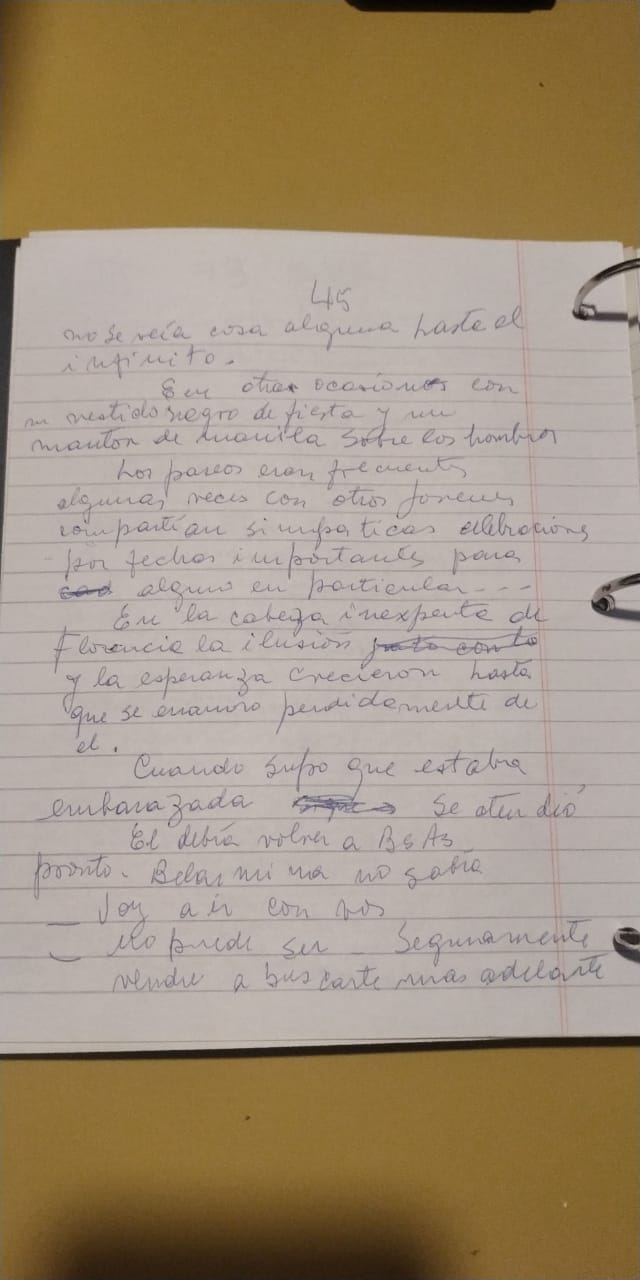 45
no se veía cosa alguna hasta el
infinito.
En otras ocasiones con
un vestido negro de fiesta y un
manton de manila sobre los hombros
Los paseos eran frecuentes
algunas veces con otros jovenes
compartían simpaticas celebraciones
por fechas importantes para
alguno en particular ---
En la cabeza inexperta de
Florencia la ilusión
y la esperanza crecieron hasta
que se enamoro perdidamente de
el.
Cuando supo que estaba
embarazada se atendió
El debía volver a BsAs
pronto. Belarmina no sabía
_ Voy a ir con vos
_ No puede ser _ Seguramente
vendre a buscarte mas adelante